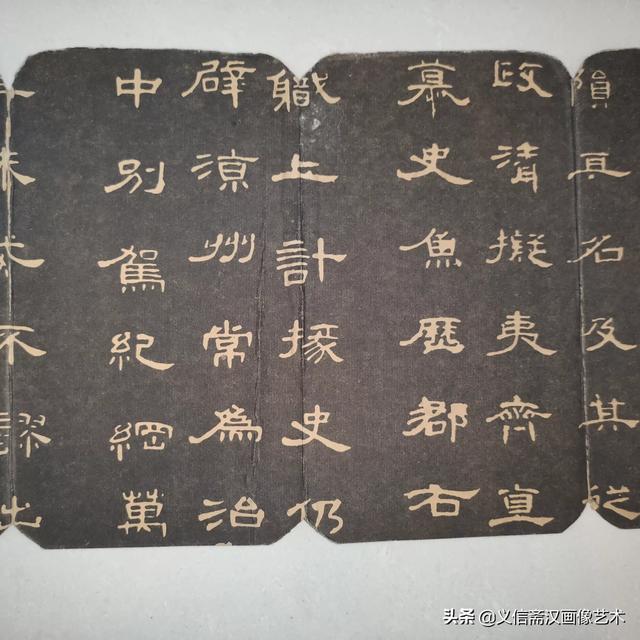 隕其名及其從
政清擬夷齊直
慕史魚歷郡右
職上計掾史仍
辟涼州常為治
中別駕紀綱萬
朱紫不謬出
头条 @义信斋汉画像艺术